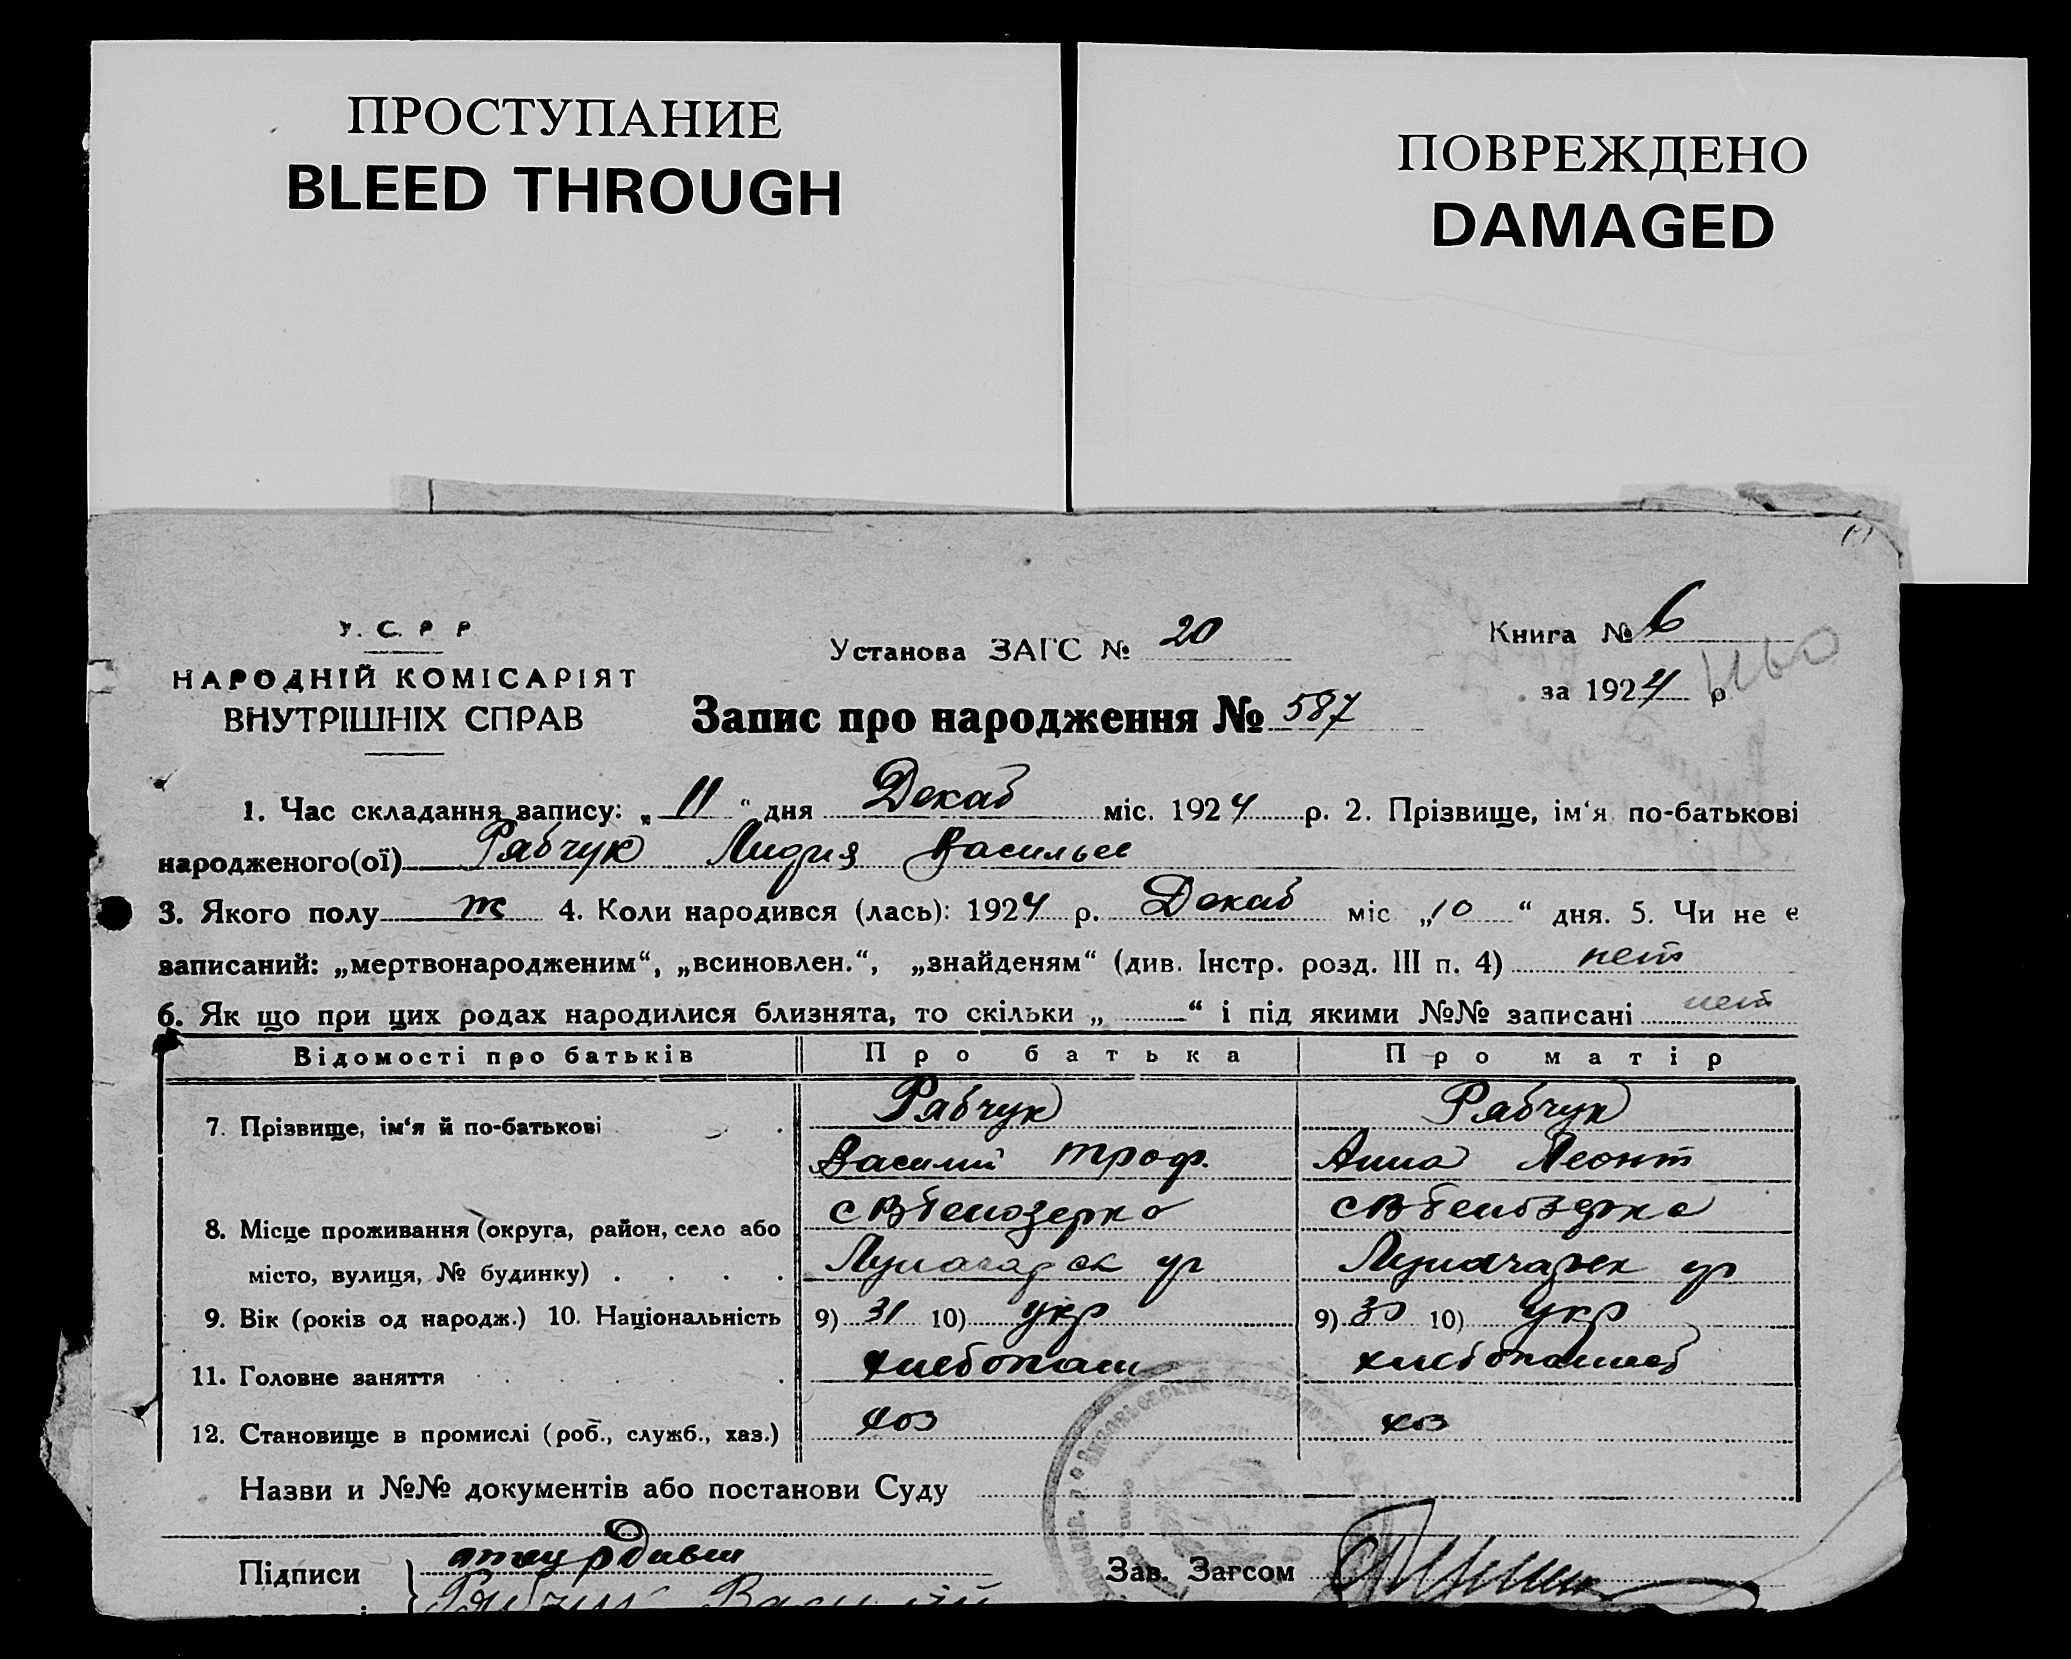 ПРОСТУПАНИЕ
BLEED THROUGH
ПОВРЕЖДЕНО
DAMAGED
У. С. Р Р
НАРОДНІЙ КОМІСАРІЯТ
ВНУТРІШНІХ СПРАВ
Установа ЗАГС № 20
Книга № 6
за 1924 р
Запис про народження № 587
1. Час складання запису: „ 11 “ дня Декаб міс. 1924 р. 2. Прізвище, ім‘я по-батькові
народженого(ої) Рябчук Лидия Васильев
3. Якого полу ж 4. Коли народився (лась): 1924 р. Декаб міс „10 “ дня. 5. Чи не е
записаний: „мертвонародженим“, „всиновлен.“, „знайденям“ (див. Інстр. розд. III п. 4) нет
6. Як що при цих родах народилися близнята, то скільки „ “ і під якими №№ записані нет
Відомості про батьків Про батька Про матір
7. Прізвище, ім‘я й по-батькові Рябчук Рябчук
Василий Троф. Анна Леонт
8. Місце проживання (округа, район, село або с В Белозерка с В Белозерка
місто, вулиця, № будинку) Луначарск ул Луначарск ул
9. Вік (років од народж.) 10. Національність 9) 31 10) укр 9) 30 10) укр
11. Головне заняття хлебопаш хлебопашеб
12. Становище в промислі (роб., служб., хаз.) хоз хоз
Назви и №№ документів або постанови Суду
Підписи Рябчук Василий
Зав. Загсом